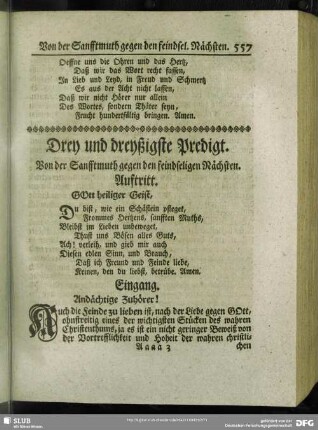 Von der Sanfftmuth gegen den feindsel. Nächsten. 557
Oeffne uns die Ohren und das Hertz,
Daß wir das Wort recht fassen,
In Lieb und Leyd, in Freud und Schmertz
Es aus der Acht nicht lassen,
Daß wir nicht Hörer nur allein
Des Wortes, sondern Thäter seyn,
Frucht hundertfältig bringen. Amen.
Drey und dreyßigste Predigt.
Von der Sanfftmuth gegen den feindseligen Nächsten.
Auftritt.
GOtt heiliger Geist,
Du bist, wie ein Schäflein pfleget,
Frommes Hertzens, sanfften Muths,
Bleibst im Lieben unbeweget,
Thust uns Bösen alles Guts,
Ach! verleih, und gieb mir auch
Diesen edlen Sinn, und Brauch,
Daß ich Freund und Feinde liebe,
Keinen, den du liebst, betrübe. Amen.
Eingang.
Andächtige Zuhörer!
Auch die Feinde zu lieben ist, nach der Liebe gegen GOtt,
ohnstreitig eines der wichtigsten Stücken des wahren
Christenthums, ja es ist ein nicht geringer Beweiß von
der Vortrefflichkeit und Hoheit der wahren christli-
Aaaa 3 chen
SLUB
DFG